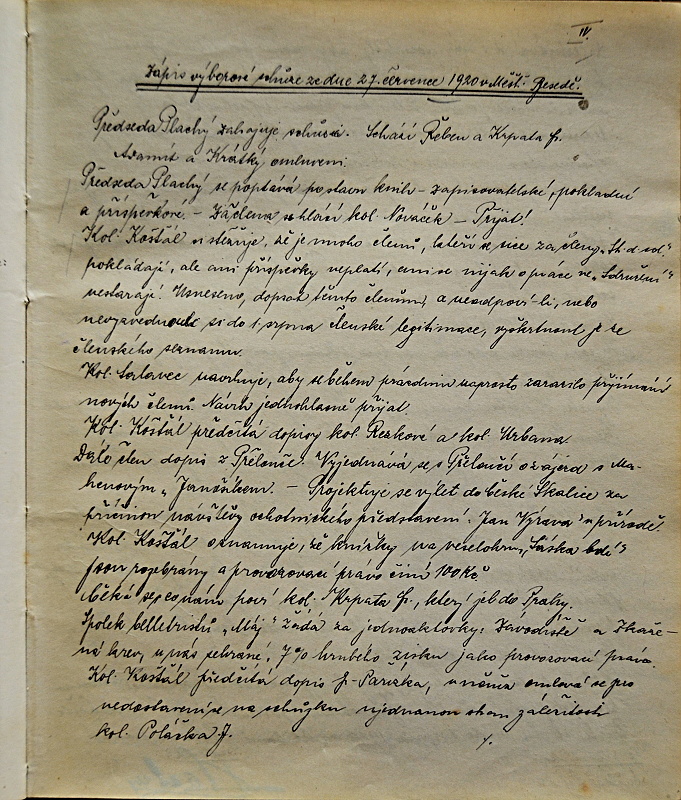 IV.
Zápis výborové schůze ze dne 27. července 1920 v Měšť. Besedě.
Předseda Plachý zahajuje schůzi. Schází Řeben a Krpata fr.
Adamít a Krátký omluveni.
Předseda Plachý se poptává po stavu knih - zapisovatelské, pokladní
a příspěvkové. - Za člena se hlásí kol. Nováček - Přijat!
Kol. Košťál si stěžuje, že je mnoho členů, kteří se sice za členy „St. d. sol."
pokládají, ale ani příspěvky neplatí, ani se nijak o práce ve „Sdružení"
nestarají. Usneseno, dopsat těmto členům, a neodpoví-li, nebo
nevyzvednou si do 1. srpna členské legitimace, vyškrtnout je ze
členského seznamu.
Kol. navrhuje, aby se během prázdnin naprosto zarazilo přijímání
nových členů. Návrh jednohlasně přijat.
Kol. Košťál předčítá dopisy kol. Rezkové a kol. Urbana.
Dále čten dopis z Přelouče. Vyjednává se s Přeloučí o zájezd s Ma-
henovým „Janošíkem. - Projektuje se výlet do České Skalice za
příčinou návštěvy ochotnického představení „Jan Výrava" v přírodě.
Kol. Košťál oznamuje, že knížky na veselohru „Láska bdí"
jsou rozebrány a provozovací právo činí 100 Kč.
poví kol. Krpata fr., který jel do Prahy.
Spolek belletristů „Máj" žádá za jednoaktovky: Závodiště a Zkaže-
ná krev, u nás sehrané, 7% hrubého zisku jako provozovací právo.
Kol. Košťál předčítá dopis p. Pařízka, v němž omlouvá se pro
nedostavení se na schůzku ujednanou stran záležitosti
kol. Poláčka J.